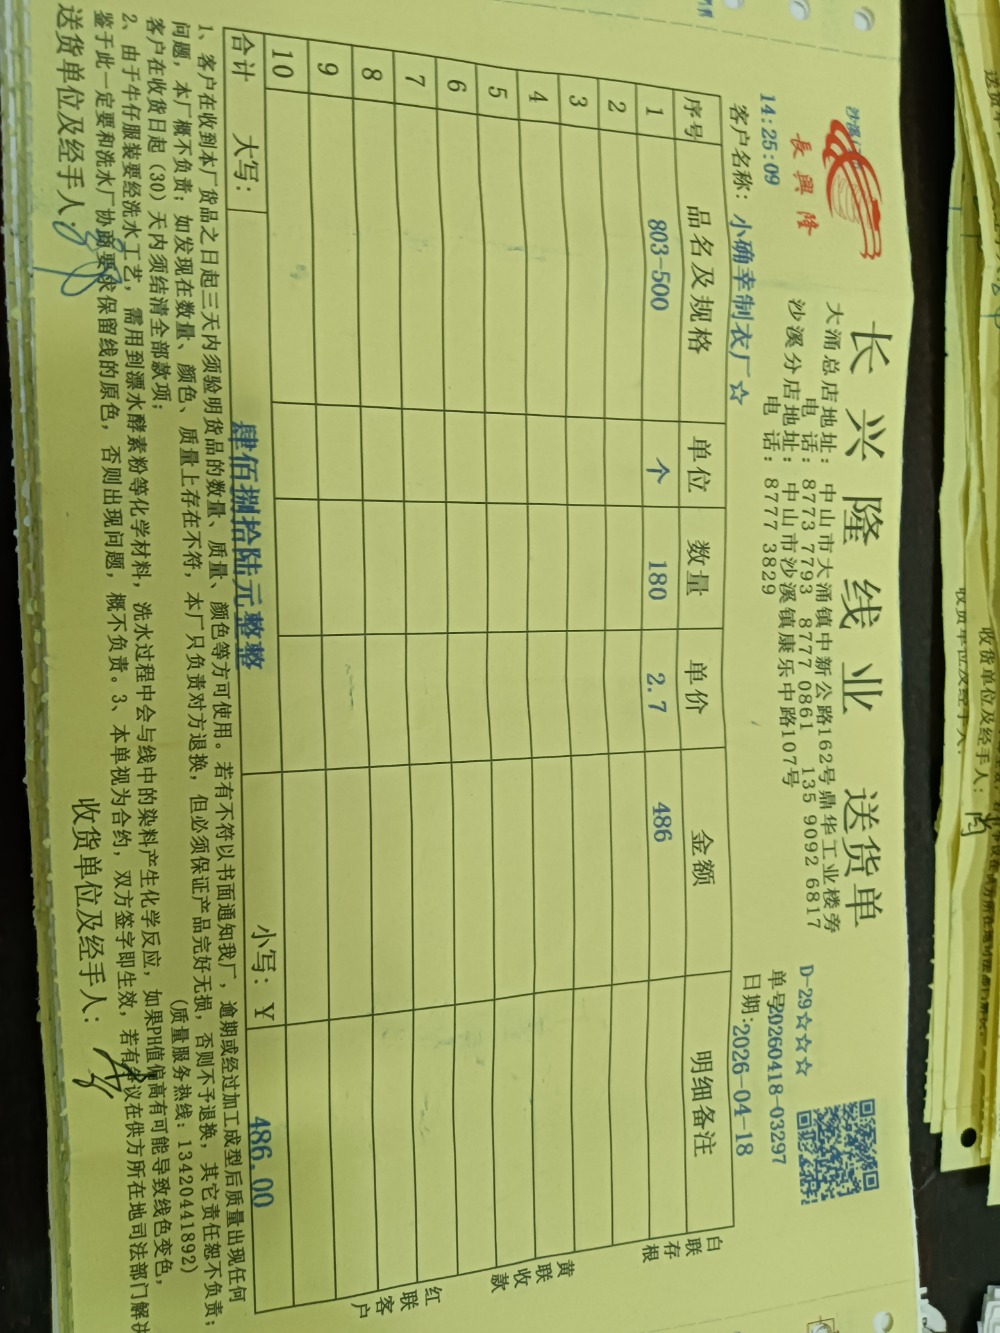 長興隆
长兴隆线业 送货单
大涌总店地址：中山市大涌镇中新公路162号鼎华工业楼旁
电 话：8773 7793 8777 0861 135 9092 6817
沙溪分店地址：中山市沙溪镇康乐中路107号
电 话：8777 3829
D-29☆☆☆
单号20260418-03297
14:25:09
日期:2026-04-18
客户名称：小确幸制衣厂☆
序号 品名及规格 单位 数量 单价 金额 明细备注
1 803-500 个 180 2.7 486
2
3
4
5
6
7
8
9
10
合计 大写：肆佰捌拾陆元整整 小写：￥ 486.00
白联存根
黄联收款
红联客户
1、客户在收到本厂货品之日起三天内须验明货品的数量、质量、颜色等方可使用。若有不符以书面通知我厂，逾期或经过加工成型后质量出现任何
问题，本厂概不负责；如发现在数量、颜色、质量上存在不符，本厂只负责对方退换，但必须保证产品完好无损，否则不予退换，其它责任恕不负责；
客户在收货日起（30）天内须结清全部款项； （质量服务热线：13420441892）
2、由于牛仔服装要经洗水工艺，需用到漂水酵素粉等化学材料，洗水过程中会与线中的染料产生化学反应，如果PH值偏高有可能导致线色变色，
鉴于此一定要和洗水厂协商要求保留线的原色，否则出现问题，概不负责。3、本单视为合约，双方签字即生效，若有争议在供方所在地司法部门解决
送货单位及经手人： 收货单位及经手人：
收货单位及经手人：
收货单位及经手人：